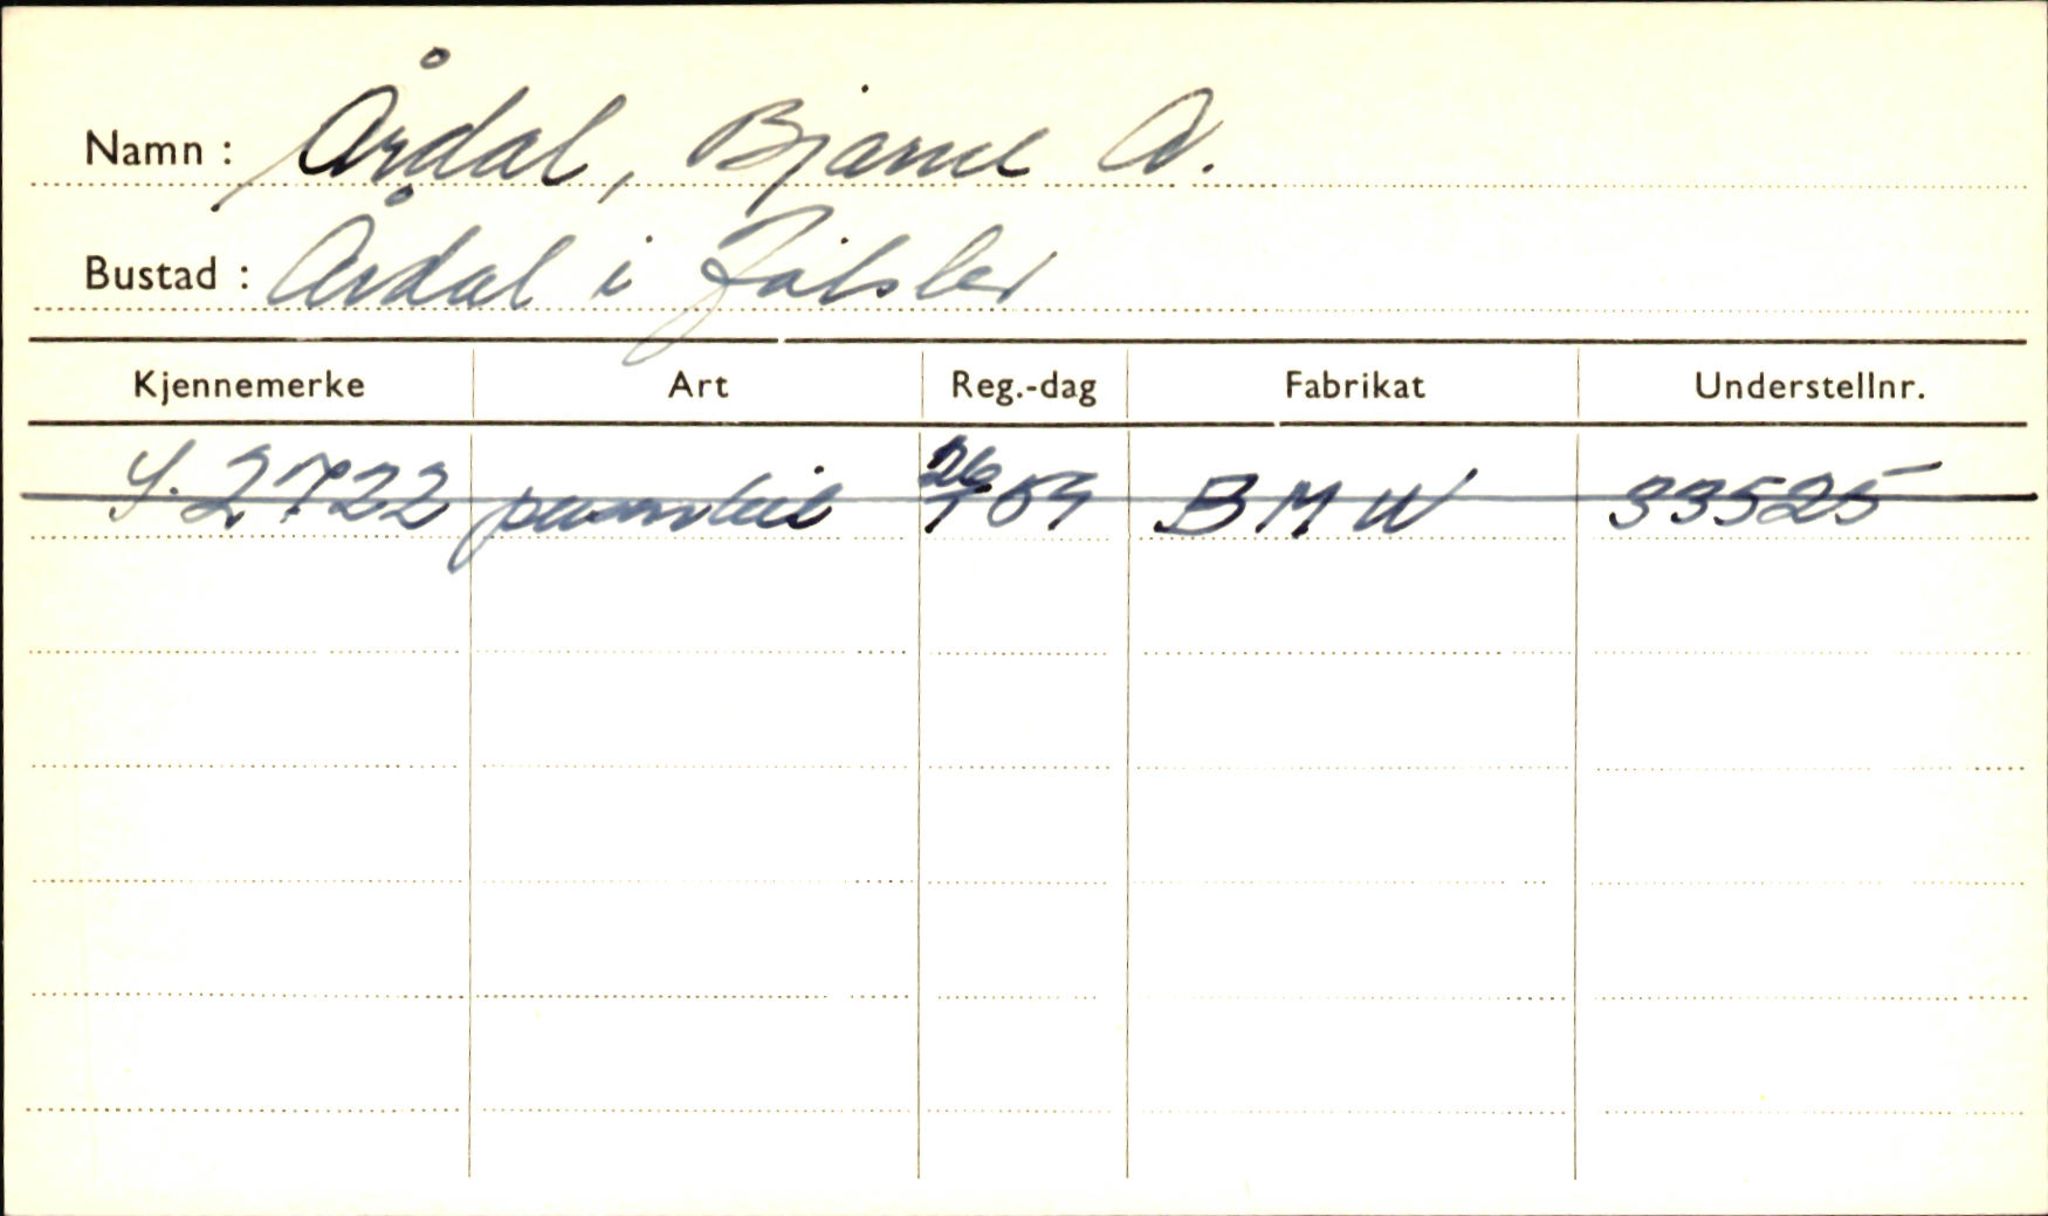 Namn : Årdal, Bjarne A.
Bustad : Årdal i Jølster
Kjennemerke Art Reg.-dag Fabrikat Understellnr.
S. 2722 personbil 26/7 54 BMW 33525